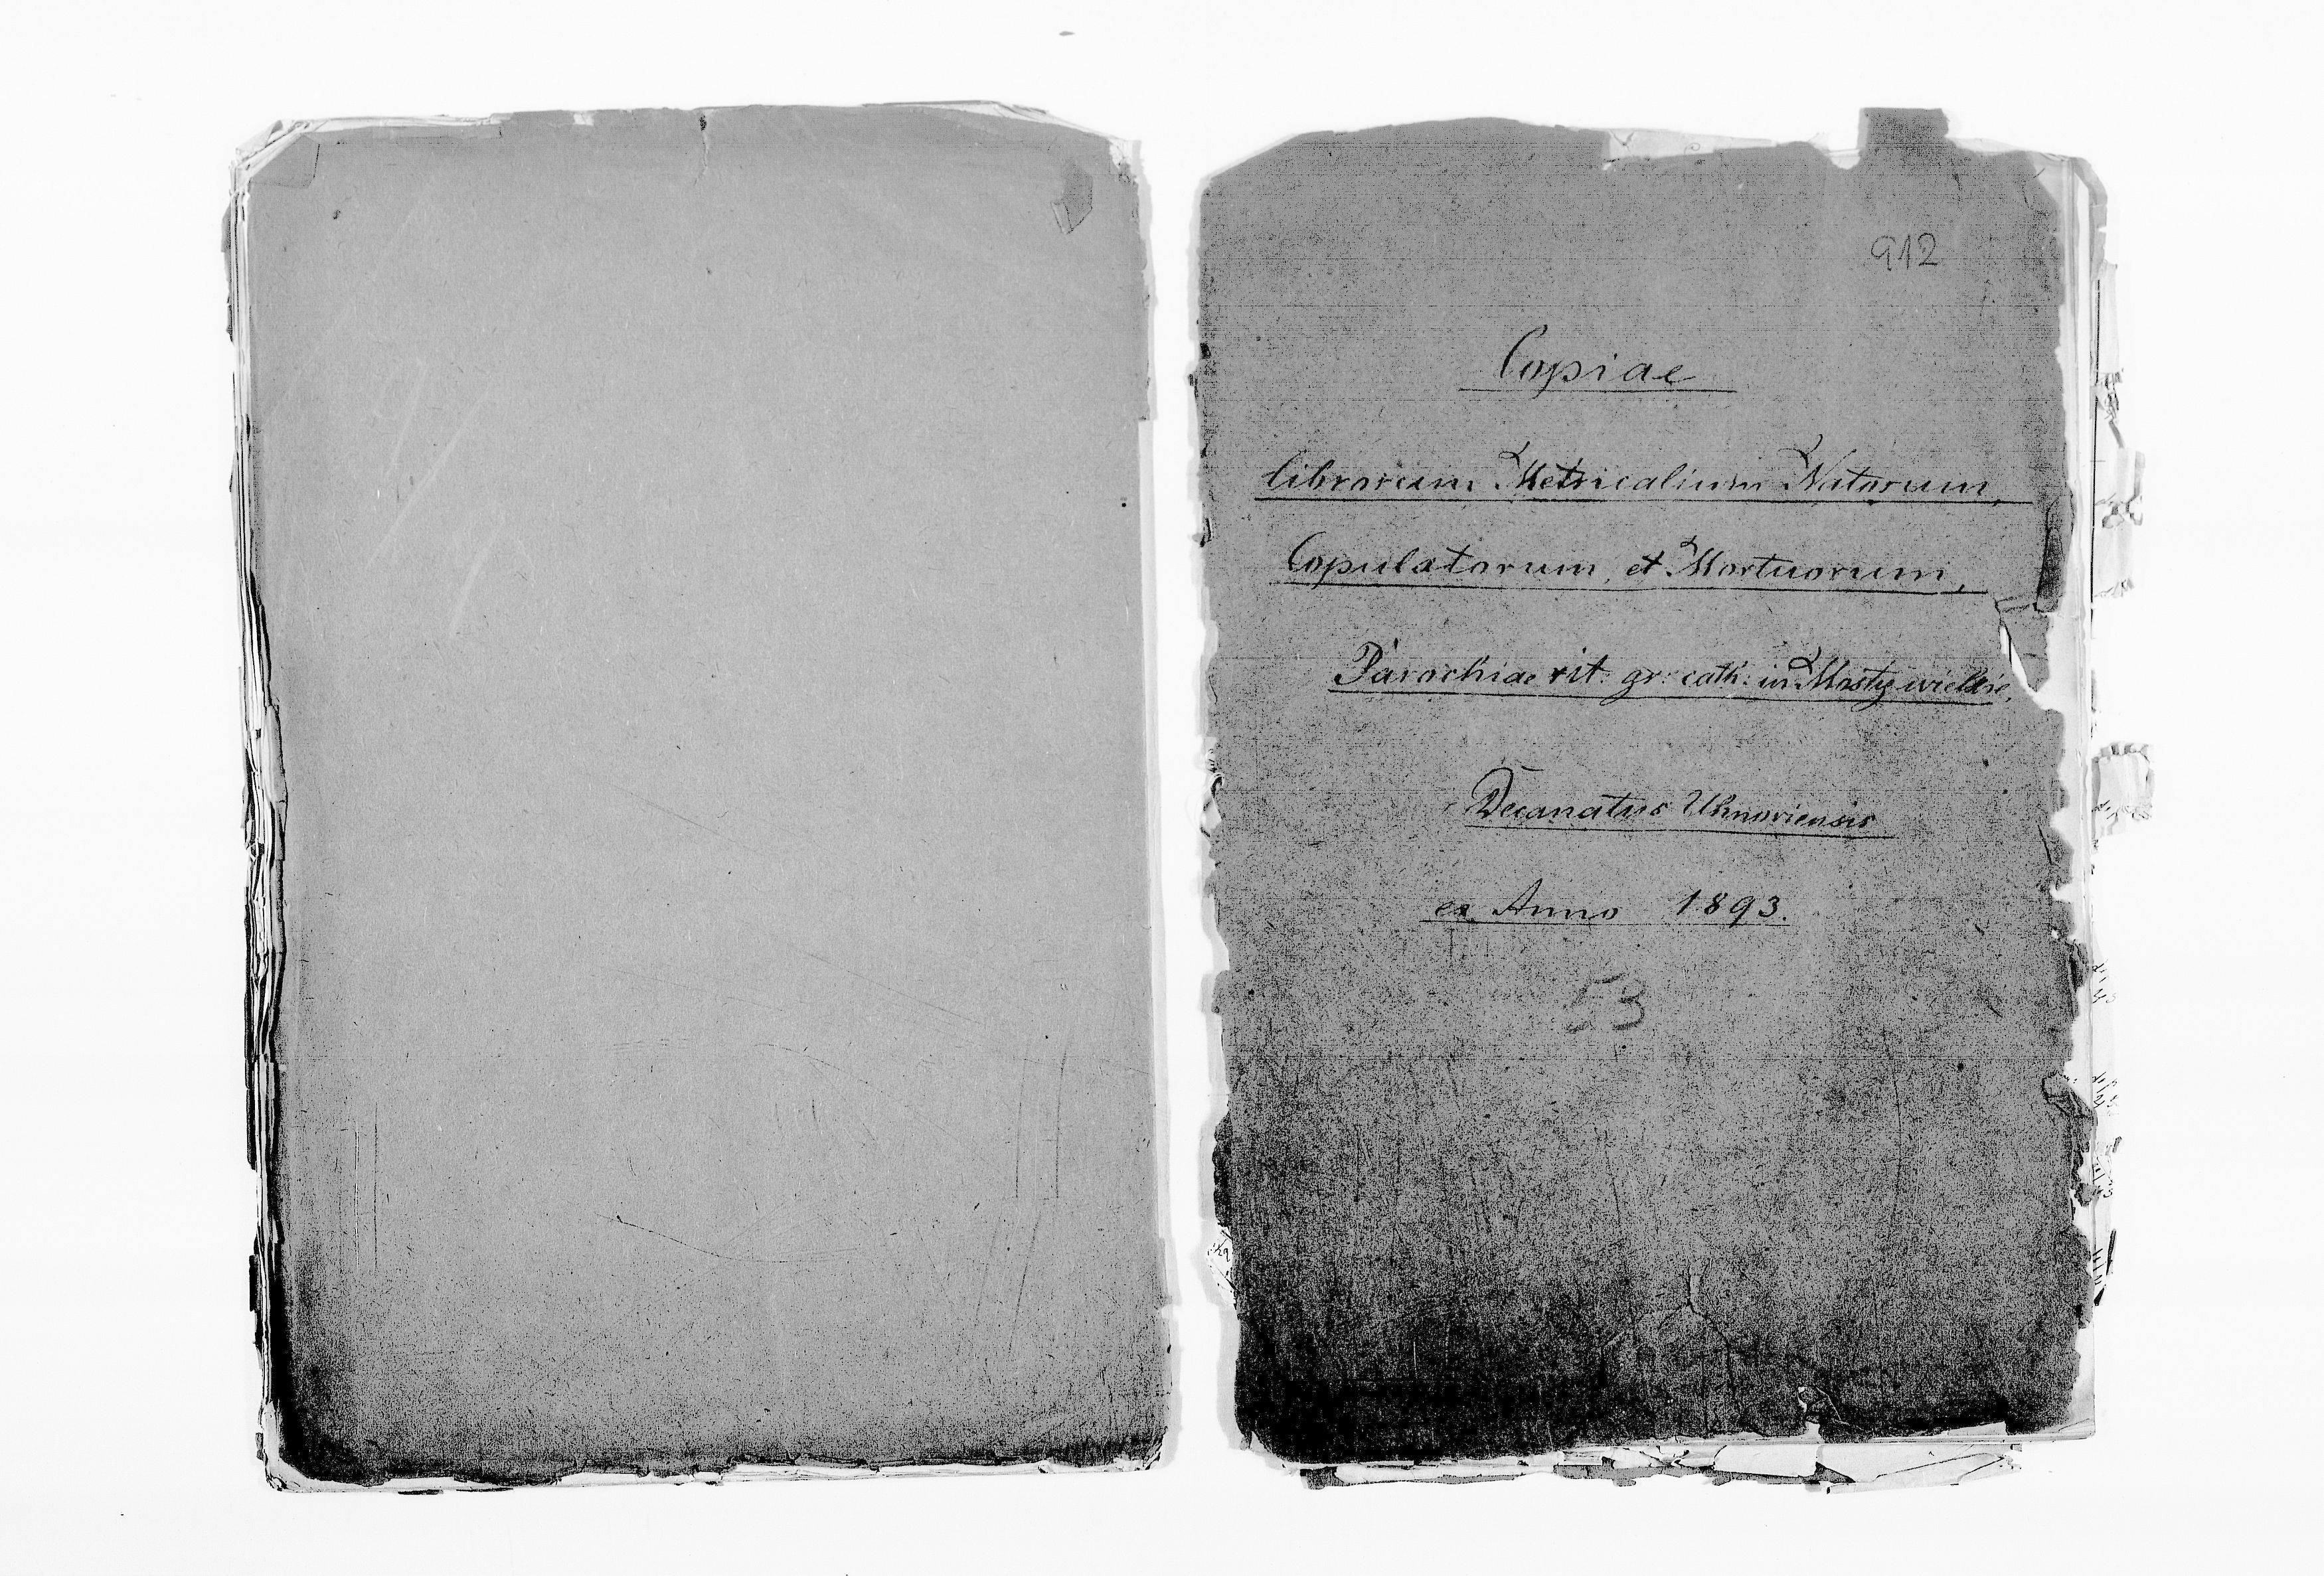 912
Copiae
librorum Metricalium Natorum,
Copulatorum, et Mortuorum,
Parochiae rit. gr. cath. in Mosty wielkie,
Decanatus Uhnoviensis
ex Anno 1893.
53